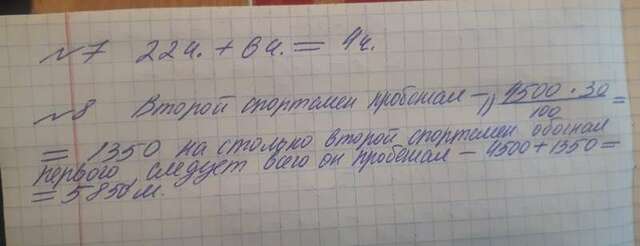 №7 22ч. + 6ч. = 4ч.
№8 Второй спортсмен пробежал – 1) 4500 · 30 / 100 =
= 1350 на столько второй спортсмен обогнал
первого, следует всего он пробежал – 4500 + 1350 =
= 5850м.